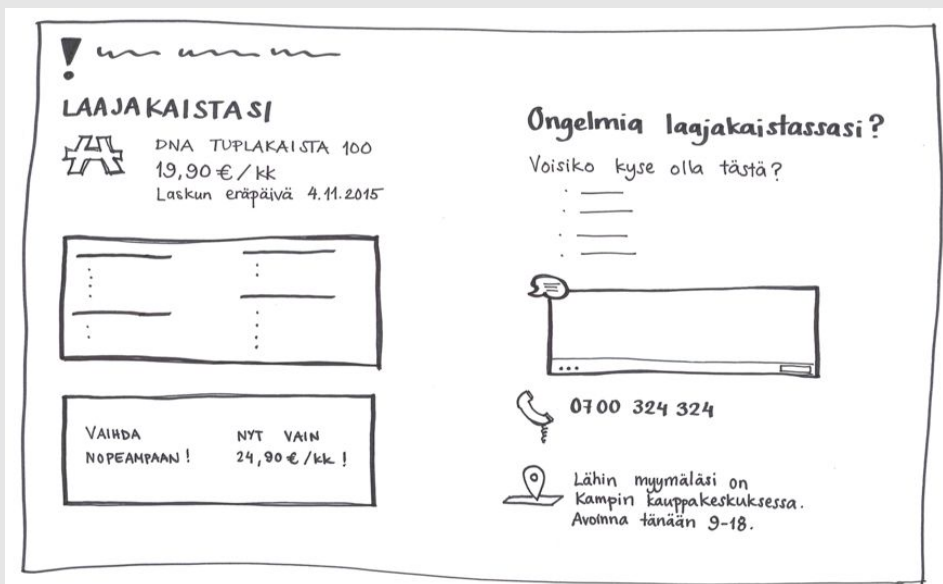 LAAJAKAISTASI
DNA TUPLAKAISTA 100
19,90 € / kk
Laskun eräpäivä 4.11.2015
VAIHDA
NOPEAMPAAN!
NYT VAIN
24,90 € /kk !
Ongelmia laajakaistassasi?
Voisiko kyse olla tästä?
0700 324 324
Lähin myymäläsi on
Kampin kauppakeskuksessa.
Avoinna tänään 9-18.